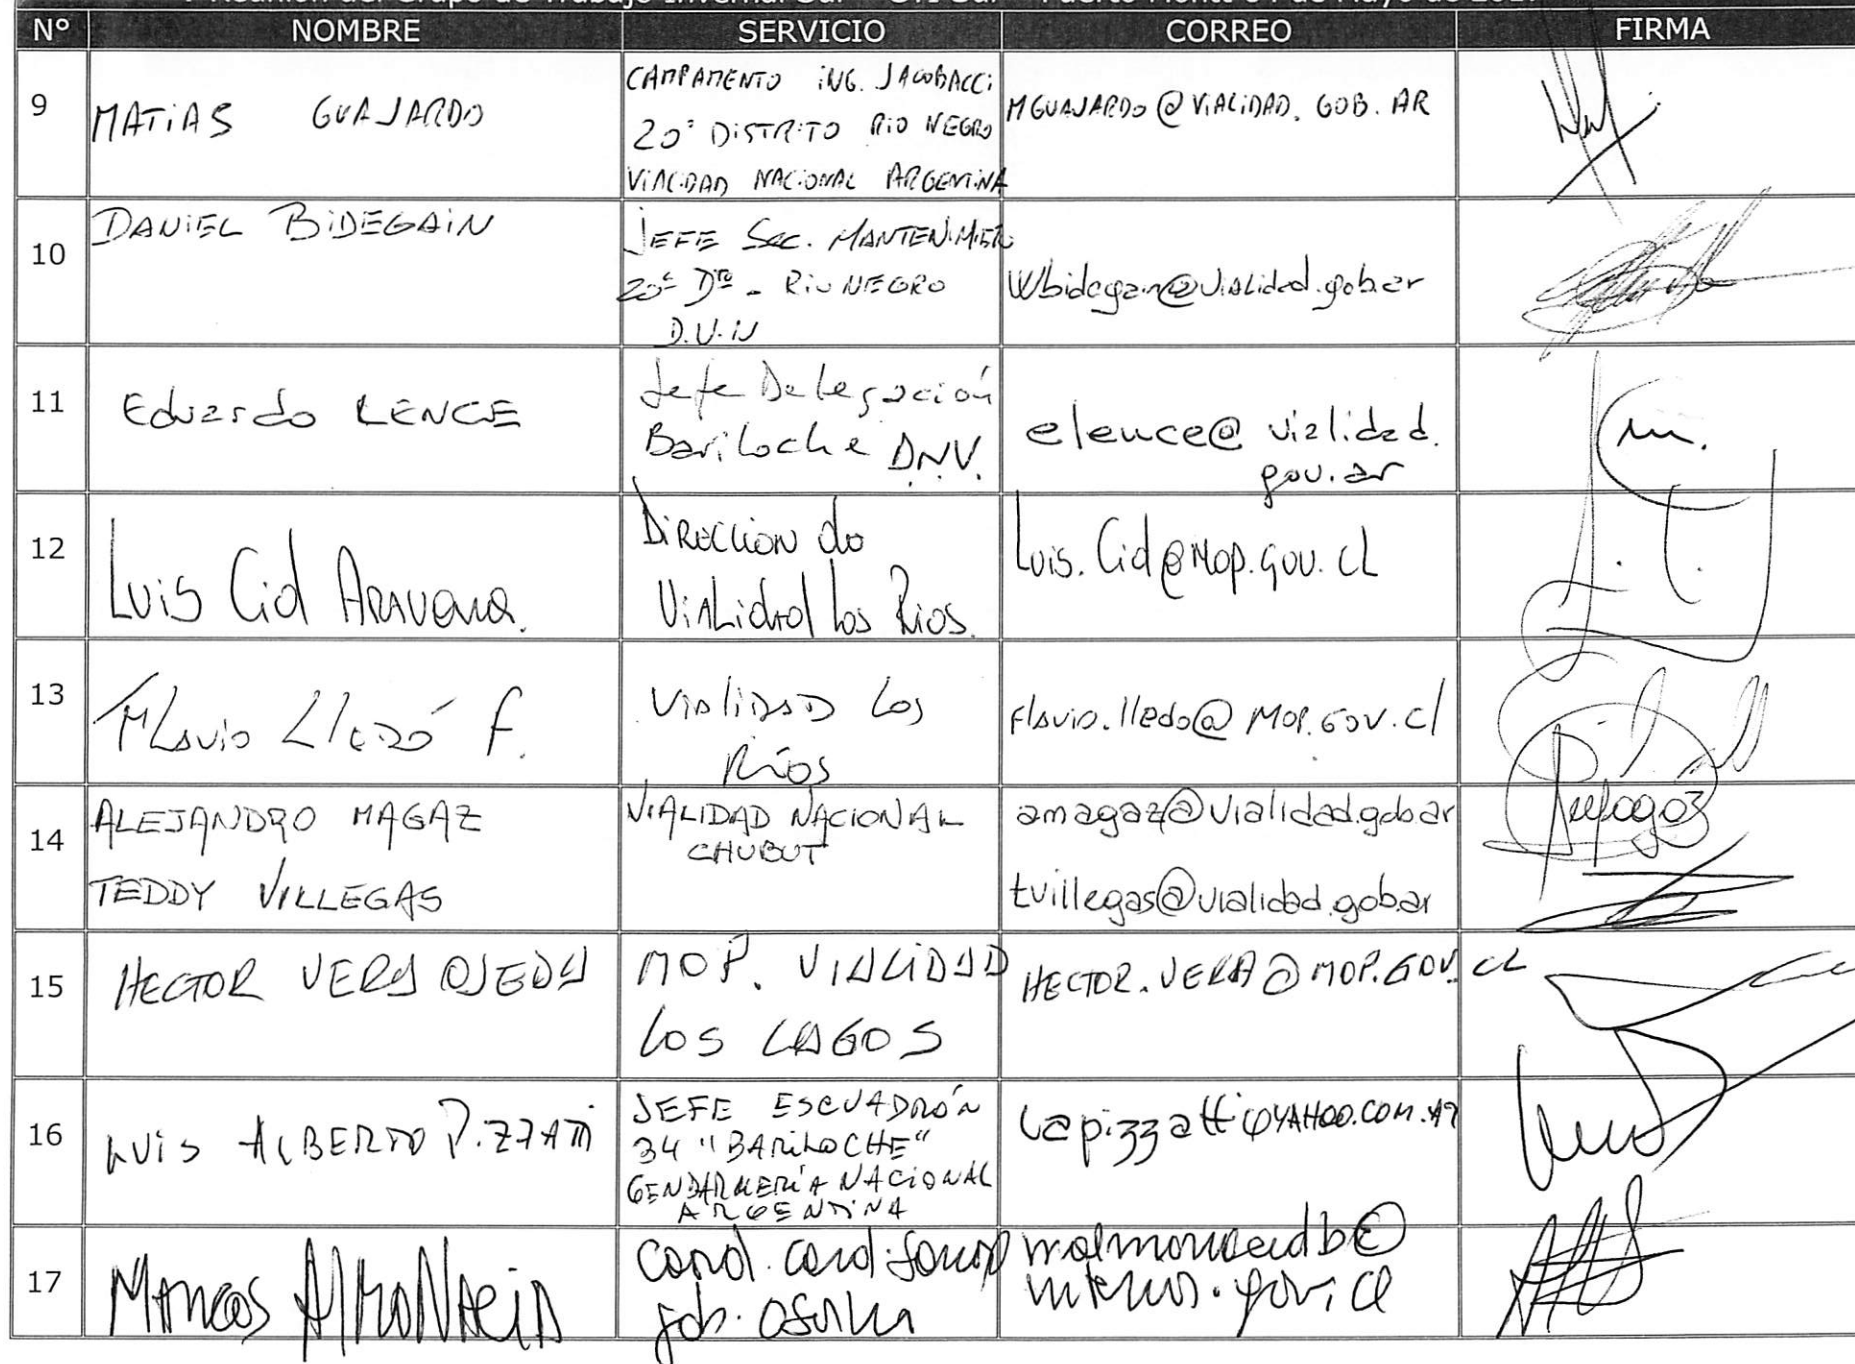 Nº NOMBRE SERVICIO CORREO FIRMA
9 MATIAS GUAJARDO
CAMPAMENTO ING. JACOBACCI
20º DISTRITO RIO NEGRO
VIALIDAD NACIONAL ARGENTINA
MGUAJARDO@VIALIDAD.GOB.AR
10 DANIEL BIDEGAIN
JEFE SEC. MANTENIMIETO
20º Dto - RIO NEGRO
D.V.N
Wbidegain@vialidad.gob.ar
11 Eduardo LENCE
Jefe Delegación
Bariloche D.N.V.
elence@vialidad.
gov.ar
12 Luis Cid Aravena.
Direccion de
Vialidad los Rios.
Luis.Cid@MOP.gov.CL
13 Flavio Lledó F.
Vialidad Los
Ríos
flavio.lledo@MOP.GOV.cl
14 ALEJANDRO MAGAZ
TEDDY VILLEGAS
VIALIDAD NACIONAL
CHUBUT
amagaz@vialidad.gob.ar
tvillegas@vialidad.gob.ar
15 HECTOR VERA OJEDA
MOP. VIALIDAD
LOS LAGOS
HECTOR.VERA@MOP.GOV.CL
16 LUIS ALBERTO PIZZATTI
JEFE ESCUADRÓN
34 "BARILOCHE"
GENDARMERÍA NACIONAL
ARGENTINA
lapizzatti@YAHOO.COM.AR
17 Marcos Almonacid
gob. Osorno
malmonacidb@
interior.gov.cl